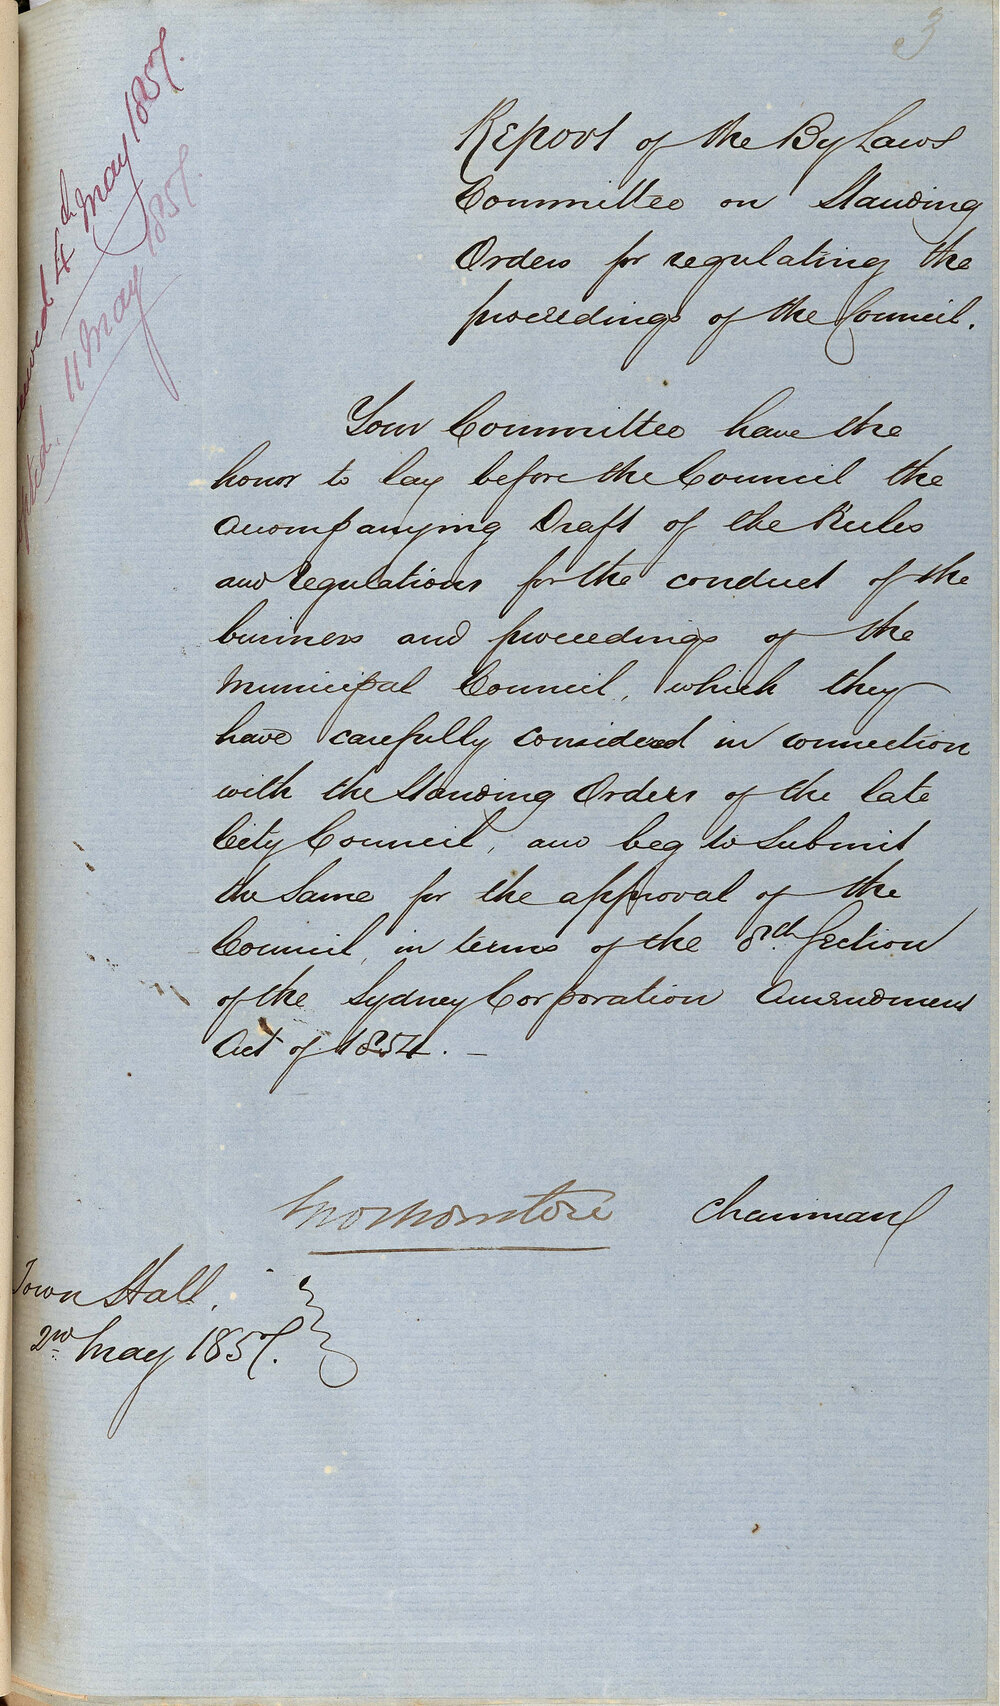 3
4th May 1857.
11 May 1857.
Report of the By Laws
Committee on Standing
Orders for regulating the
proceedings of the Council.
Your Committee have the
honor to lay before the Council the
accompanying Draft of the Rules
and regulations for the conduct of the
business and proceedings of the
Municipal Council, which they
have carefully considered in connection
with the Standing Orders of the late
City Council, and beg to submit
the same for the approval of the
Council, in terms of the 8th Section
of the Sydney Corporation Amendment
Act of 1854. —
Chairman
Town Hall,
2nd May 1857.